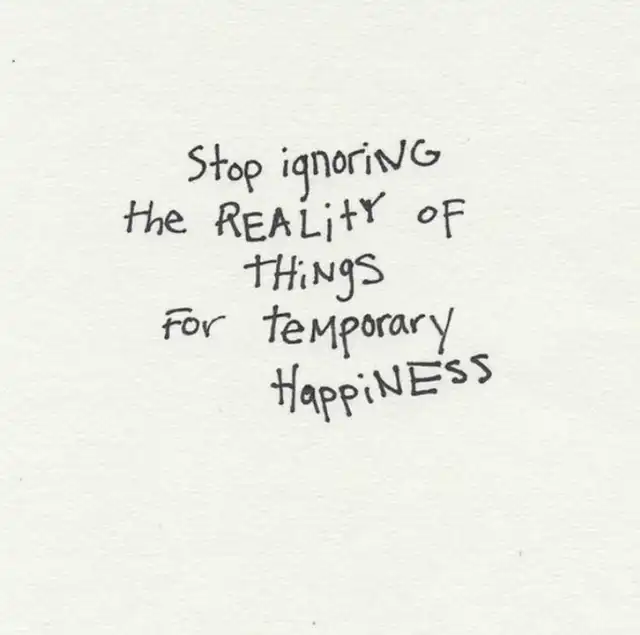 Stop ignoriNG
the REALitY oF
tHiNgS
For teMporary
HappiNESS